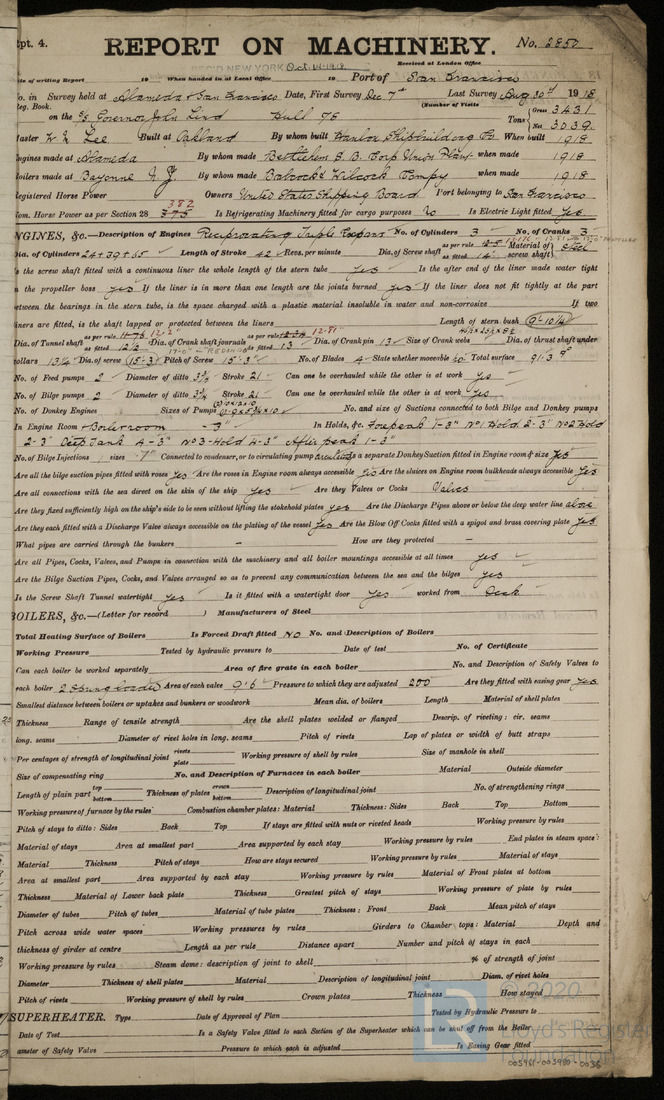 Rpt. 4. REPORT ON MACHINERY. No. 2850
REC'D NEW YORK Oct. 14-1918 Received at London Office
Date of writing Report 19 When handed in at Local Office 19 Port of San Francisco
No. in Survey held at Alameda & San Francisco Date, First Survey Dec 7th Last Survey Aug 30th 1918
Reg. Book. (Number of Visits
on the S/S Governor John Lind Hull 78 Tons { Gross 3431
Net 3039
Master W. N. Lee Built at Oakland By whom built Hanlon Shipbuilding Co When built 1918
Engines made at Alameda By whom made Bethlehem S. B. Corp Union Plant when made 1918
Boilers made at Bayonne N J. By whom made Babcock & Wilcock Company when made 1918
Registered Horse Power Owners United States Shipping Board Port belonging to San Francisco
Nom. Horse Power as per Section 28 375 382 Is Refrigerating Machinery fitted for cargo purposes No Is Electric Light fitted Yes
ENGINES, &c.—Description of Engines Reciprocating Triple Expans No. of Cylinders 3 No. of Cranks 3
Dia. of Cylinders 24×39×65 Length of Stroke 42 Revs. per minute Dia. of Screw shaft as per rule as fitted 14" Material of screw shaft Steel
Is the screw shaft fitted with a continuous liner the whole length of the stern tube yes Is the after end of the liner made water tight
in the propeller boss yes If the liner is in more than one length are the joints burned yes If the liner does not fit tightly at the part
between the bearings in the stern tube, is the space charged with a plastic material insoluble in water and non-corrosive If two
liners are fitted, is the shaft lapped or protected between the liners Length of stern bush 9'-10¼
Dia. of Tunnel shaft as per rule 11.76 12.2" as fitted 12½ Dia. of Crank shaft journals as per rule 12.34 12.81" as fitted 13 Dia. of Crank pin 13 Size of Crank webs Dia. of thrust shaft under
collars 13¼ Dia. of screw 15'-3 Pitch of Screw 15'-3" No. of Blades 4 State whether moveable no Total surface 91.3
No. of Feed pumps 2 Diameter of ditto 3¾ Stroke 21 Can one be overhauled while the other is at work yes
No. of Bilge pumps 2 Diameter of ditto 3¾ Stroke 21 Can one be overhauled while the other is at work yes
No. of Donkey Engines Sizes of Pumps No. and size of Suctions connected to both Bilge and Donkey pumps
In Engine Room & Boilerroom - 3" In Holds, &c. Forepeak 1-3" No1 Hold 2-3" No2 Hold
2-3" Deep Tank 4-3" No3-Hold 4-3" After peak 1-3"
No. of Bilge Injections 1 sizes 7" Connected to condenser, or to circulating pump circulating Is a separate Donkey Suction fitted in Engine room & size yes
Are all the bilge suction pipes fitted with roses yes Are the roses in Engine room always accessible yes Are the sluices on Engine room bulkheads always accessible yes
Are all connections with the sea direct on the skin of the ship yes Are they Valves or Cocks Valves
Are they fixed sufficiently high on the ship's side to be seen without lifting the stokehold plates yes Are the Discharge Pipes above or below the deep water line above
Are they each fitted with a Discharge Valve always accessible on the plating of the vessel yes Are the Blow Off Cocks fitted with a spigot and brass covering plate yes
What pipes are carried through the bunkers - How are they protected -
Are all Pipes, Cocks, Valves, and Pumps in connection with the machinery and all boiler mountings accessible at all times yes
Are the Bilge Suction Pipes, Cocks, and Valves arranged so as to prevent any communication between the sea and the bilges yes
Is the Screw Shaft Tunnel watertight yes Is it fitted with a watertight door yes worked from Deck
BOILERS, &c.—(Letter for record ) Manufacturers of Steel
Total Heating Surface of Boilers Is Forced Draft fitted No No. and Description of Boilers
Working Pressure Tested by hydraulic pressure to Date of test No. of Certificate
Can each boiler be worked separately Area of fire grate in each boiler No. and Description of Safety Valves to
each boiler 2 Spring loaded Area of each valve 9.6 Pressure to which they are adjusted 200 Are they fitted with easing gear Yes
Smallest distance between boilers or uptakes and bunkers or woodwork Mean dia. of boilers Length Material of shell plates
Thickness Range of tensile strength Are the shell plates welded or flanged Descrip. of riveting: cir. seams
long. seams Diameter of rivet holes in long. seams Pitch of rivets Lap of plates or width of butt straps
Per centages of strength of longitudinal joint rivets plate Working pressure of shell by rules Size of manhole in shell
Size of compensating ring No. and Description of Furnaces in each boiler Material Outside diameter
Length of plain part top bottom Thickness of plates crown bottom Description of longitudinal joint No. of strengthening rings
Working pressure of furnace by the rules Combustion chamber plates: Material Thickness: Sides Back Top Bottom
Pitch of stays to ditto: Sides Back Top If stays are fitted with nuts or riveted heads Working pressure by rules
Material of stays Area at smallest part Area supported by each stay Working pressure by rules End plates in steam space:
Material Thickness Pitch of stays How are stays secured Working pressure by rules Material of stays
Area at smallest part Area supported by each stay Working pressure by rules Material of Front plates at bottom
Thickness Material of Lower back plate Thickness Greatest pitch of stays Working pressure of plate by rules
Diameter of tubes Pitch of tubes Material of tube plates Thickness: Front Back Mean pitch of stays
Pitch across wide water spaces Working pressures by rules Girders to Chamber tops: Material Depth and
thickness of girder at centre Length as per rule Distance apart Number and pitch of stays in each
Working pressure by rules Steam dome: description of joint to shell % of strength of joint
Diameter Thickness of shell plates Material Description of longitudinal joint Diam. of rivet holes
Pitch of rivets Working pressure of shell by rules Crown plates Thickness How stayed
SUPERHEATER. Type Date of Approval of Plan Tested by Hydraulic Pressure to
Date of Test Is a Safety Valve fitted to each Section of the Superheater which can be shut off from the Boiler
Diameter of Safety Valve Pressure to which each is adjusted Is Easing Gear fitted
© 2020
Lloyd's Register
Foundation
005961-005980-0036